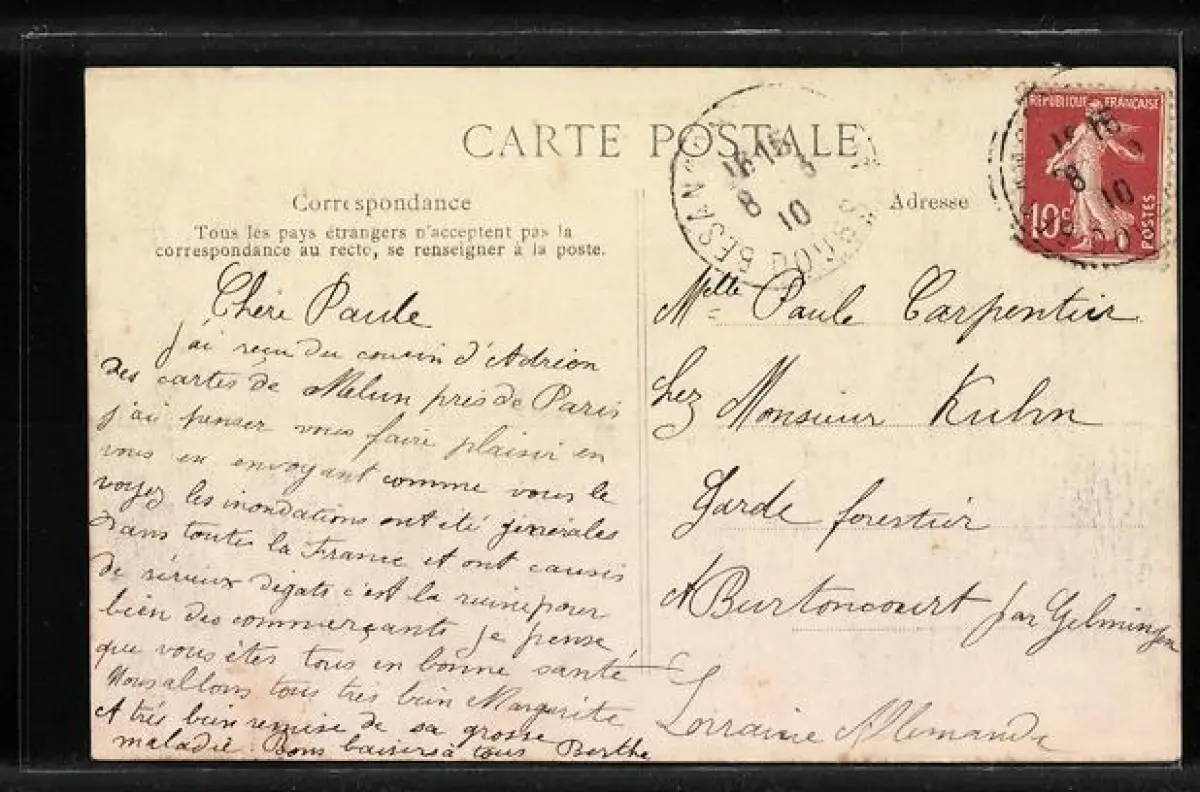 CARTE POSTALE
Correspondance
Tous les pays étrangers n'acceptent pas la
correspondance au recto, se renseigner à la poste.
Chère Paule
j'ai reçu du cousin d'Adrien
des cartes de Melun près de Paris
j'ai penser vous faire plaisir en
vous en envoyant comme vous le
voyez les inondations ont été générales
dans toute la France et ont causés
de sérieux dégats c'est la ruine pour
bien des commerçants je pense
que vous êtes tous en bonne santé
Nous allons tous très bien Margerite
A très bien remise de sa grosse
maladie Bons baisers à tous Berthe
Adresse
Melle Paule Carpentier
Chez Monsieur Kuhn
Garde forestier
A Burtoncourt par Gelmingen
Lorraine Allemande
REPUBLIQUE FRANÇAISE
10c
POSTES
BESANÇON
DOUBS
16 15
8
10
16 15
8
10